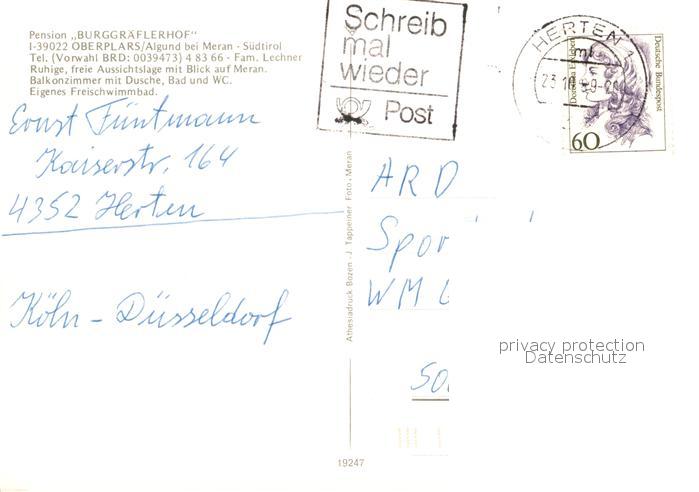 Pension „BURGGRÄFLERHOF"
I-39022 OBERPLARS/Algund bei Meran - Südtirol
Tel. (Vorwahl BRD: 0039473) 4 83 66 - Fam. Lechner
Ruhige, freie Aussichtslage mit Blick auf Meran.
Balkonzimmer mit Dusche, Bad und WC.
Eigenes Freischwimmbad.
Ernst Füntmann
Kaiserstr. 164
4352 Herten
Köln - Düsseldorf
Schreib
mal
wieder
Post
HERTEN
Deutsche Bundespost
60
Athesiadruck Bozen - J. Tappeiner Foto, Meran
ARD
Spor
WM
privacy protection
Datenschutz
19247